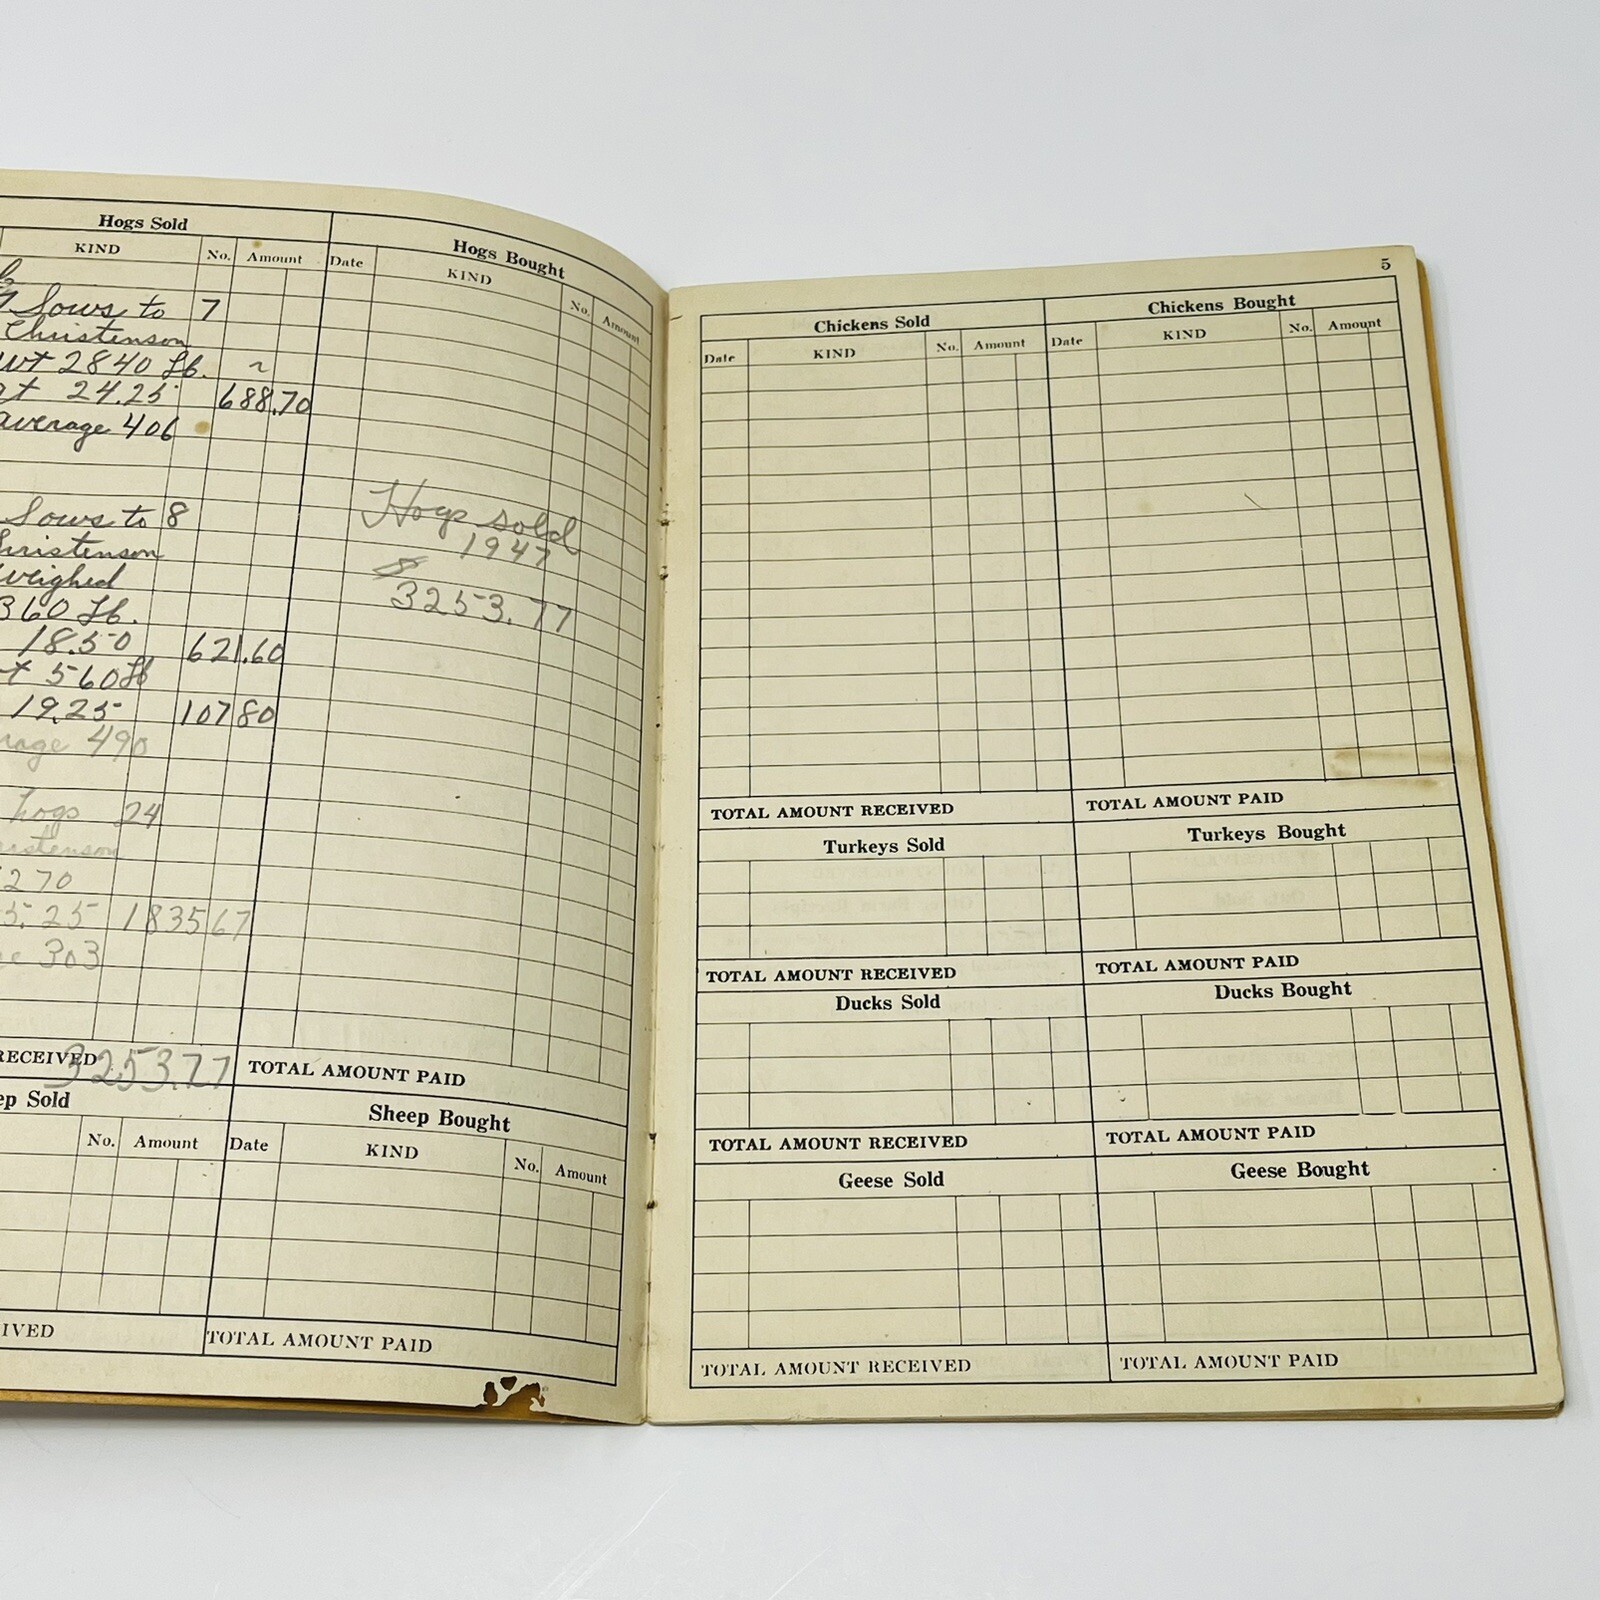 Hogs Sold
KIND No. Amount
Sows to 7
Christenson
wt 2840 Lb.
at 24.25 688.70
average 406
Sows to 8
hristenson
weighed
360 Lb.
18.50 621.60
t 560 Lb
19.25 107 80
rage 490
hogs 24
ristenson
270
5.25 1835 67
303
RECEIVED 3253.77
ep Sold
No. Amount
IVED
Hogs Bought
Date KIND No. Amount
Hogs sold
1947
$
3253.77
TOTAL AMOUNT PAID
Sheep Bought
Date KIND No. Amount
TOTAL AMOUNT PAID
5
Chickens Sold Chickens Bought
Date KIND No. Amount Date KIND No. Amount
TOTAL AMOUNT RECEIVED TOTAL AMOUNT PAID
Turkeys Sold Turkeys Bought
TOTAL AMOUNT RECEIVED TOTAL AMOUNT PAID
Ducks Sold Ducks Bought
TOTAL AMOUNT RECEIVED TOTAL AMOUNT PAID
Geese Sold Geese Bought
TOTAL AMOUNT RECEIVED TOTAL AMOUNT PAID